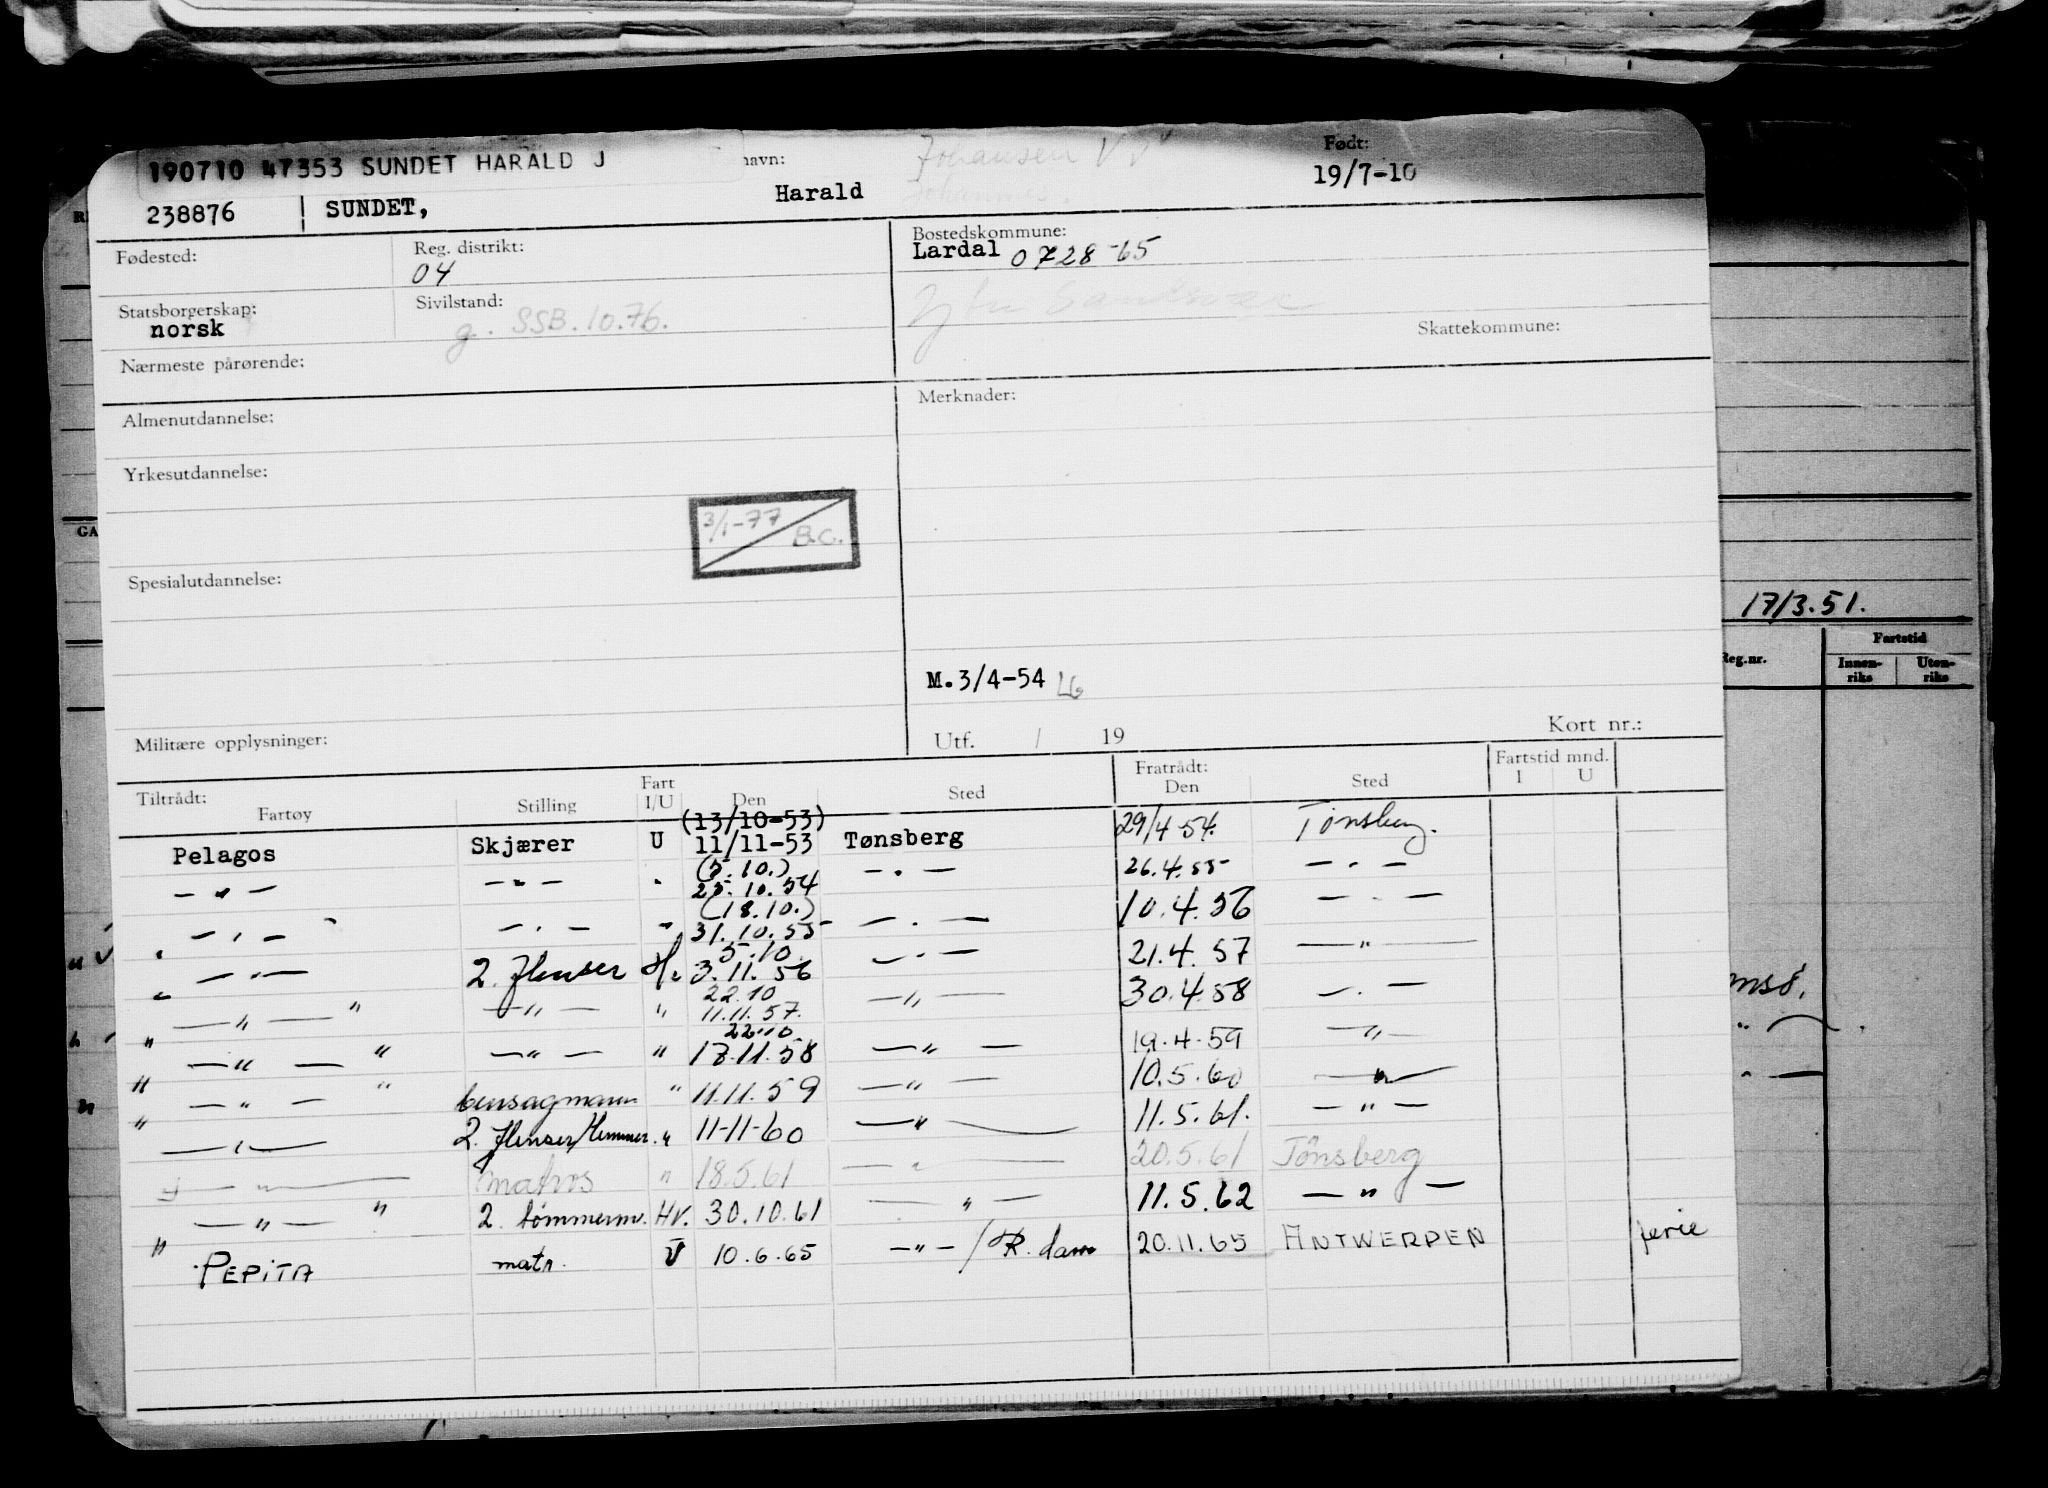 190710 47353 SUNDET HARALD J
navn: Johansen
Født:
238876 SUNDET, Harald Johannes. 19/7-10
Fødested:
Reg. distrikt:
04
Bostedskommune:
Lardal 0728-65
Statsborgerskap:
norsk
Sivilstand:
g. SSB.10.76.
Skattekommune:
Nærmeste pårørende:
Almenutdannelse:
Merknader:
Yrkesutdannelse:
3/1-77 B.C.
Spesialutdannelse:
M.3/4-54 LG
Militære opplysninger:
Utf. / 19
Kort nr.:
Tiltrådt:
Fartøy Stilling Fart I/U Den Sted Fratrådt: Den Sted Fartstid mnd. I U
(13/10-53)
Pelagos Skjærer U 11/11-53 Tønsberg 29/4 54. Tønsberg.
(5.10.)
— " — — " — " 25.10.54 — " — 26.4.55 — " —
(18.10.)
— " — — " — " 31.10.55 — " — 10.4.56 — " —
5.10.
— " — 2. flenser Hv 3.11.56 — " — 21.4.57 — " —
22.10
— " — " — " — " 11.11.57. — " — 30.4.58 — " —
22.10
— " — " — " — " 13.11.58 — " — 19.4.59 — " —
— " — " bensagmann " 11.11.59 — " — 10.5.60 — " —
— " — 2. flenser/Hemmer. " 11-11-60 — " — 11.5.61. — " —
— " — matros " 18.5.61 — " — 20.5.61 Tönsberg
— " — " 2. tømmerm. HV. 30.10.61 — " — 11.5.62 — " —
PEPITA matr. U 10.6.65 — " — / R.dam 20.11.65 ANTWERPEN ferie
17/3.51.
Reg.nr.
Fartstid
Innen-
riks
Uten-
riks